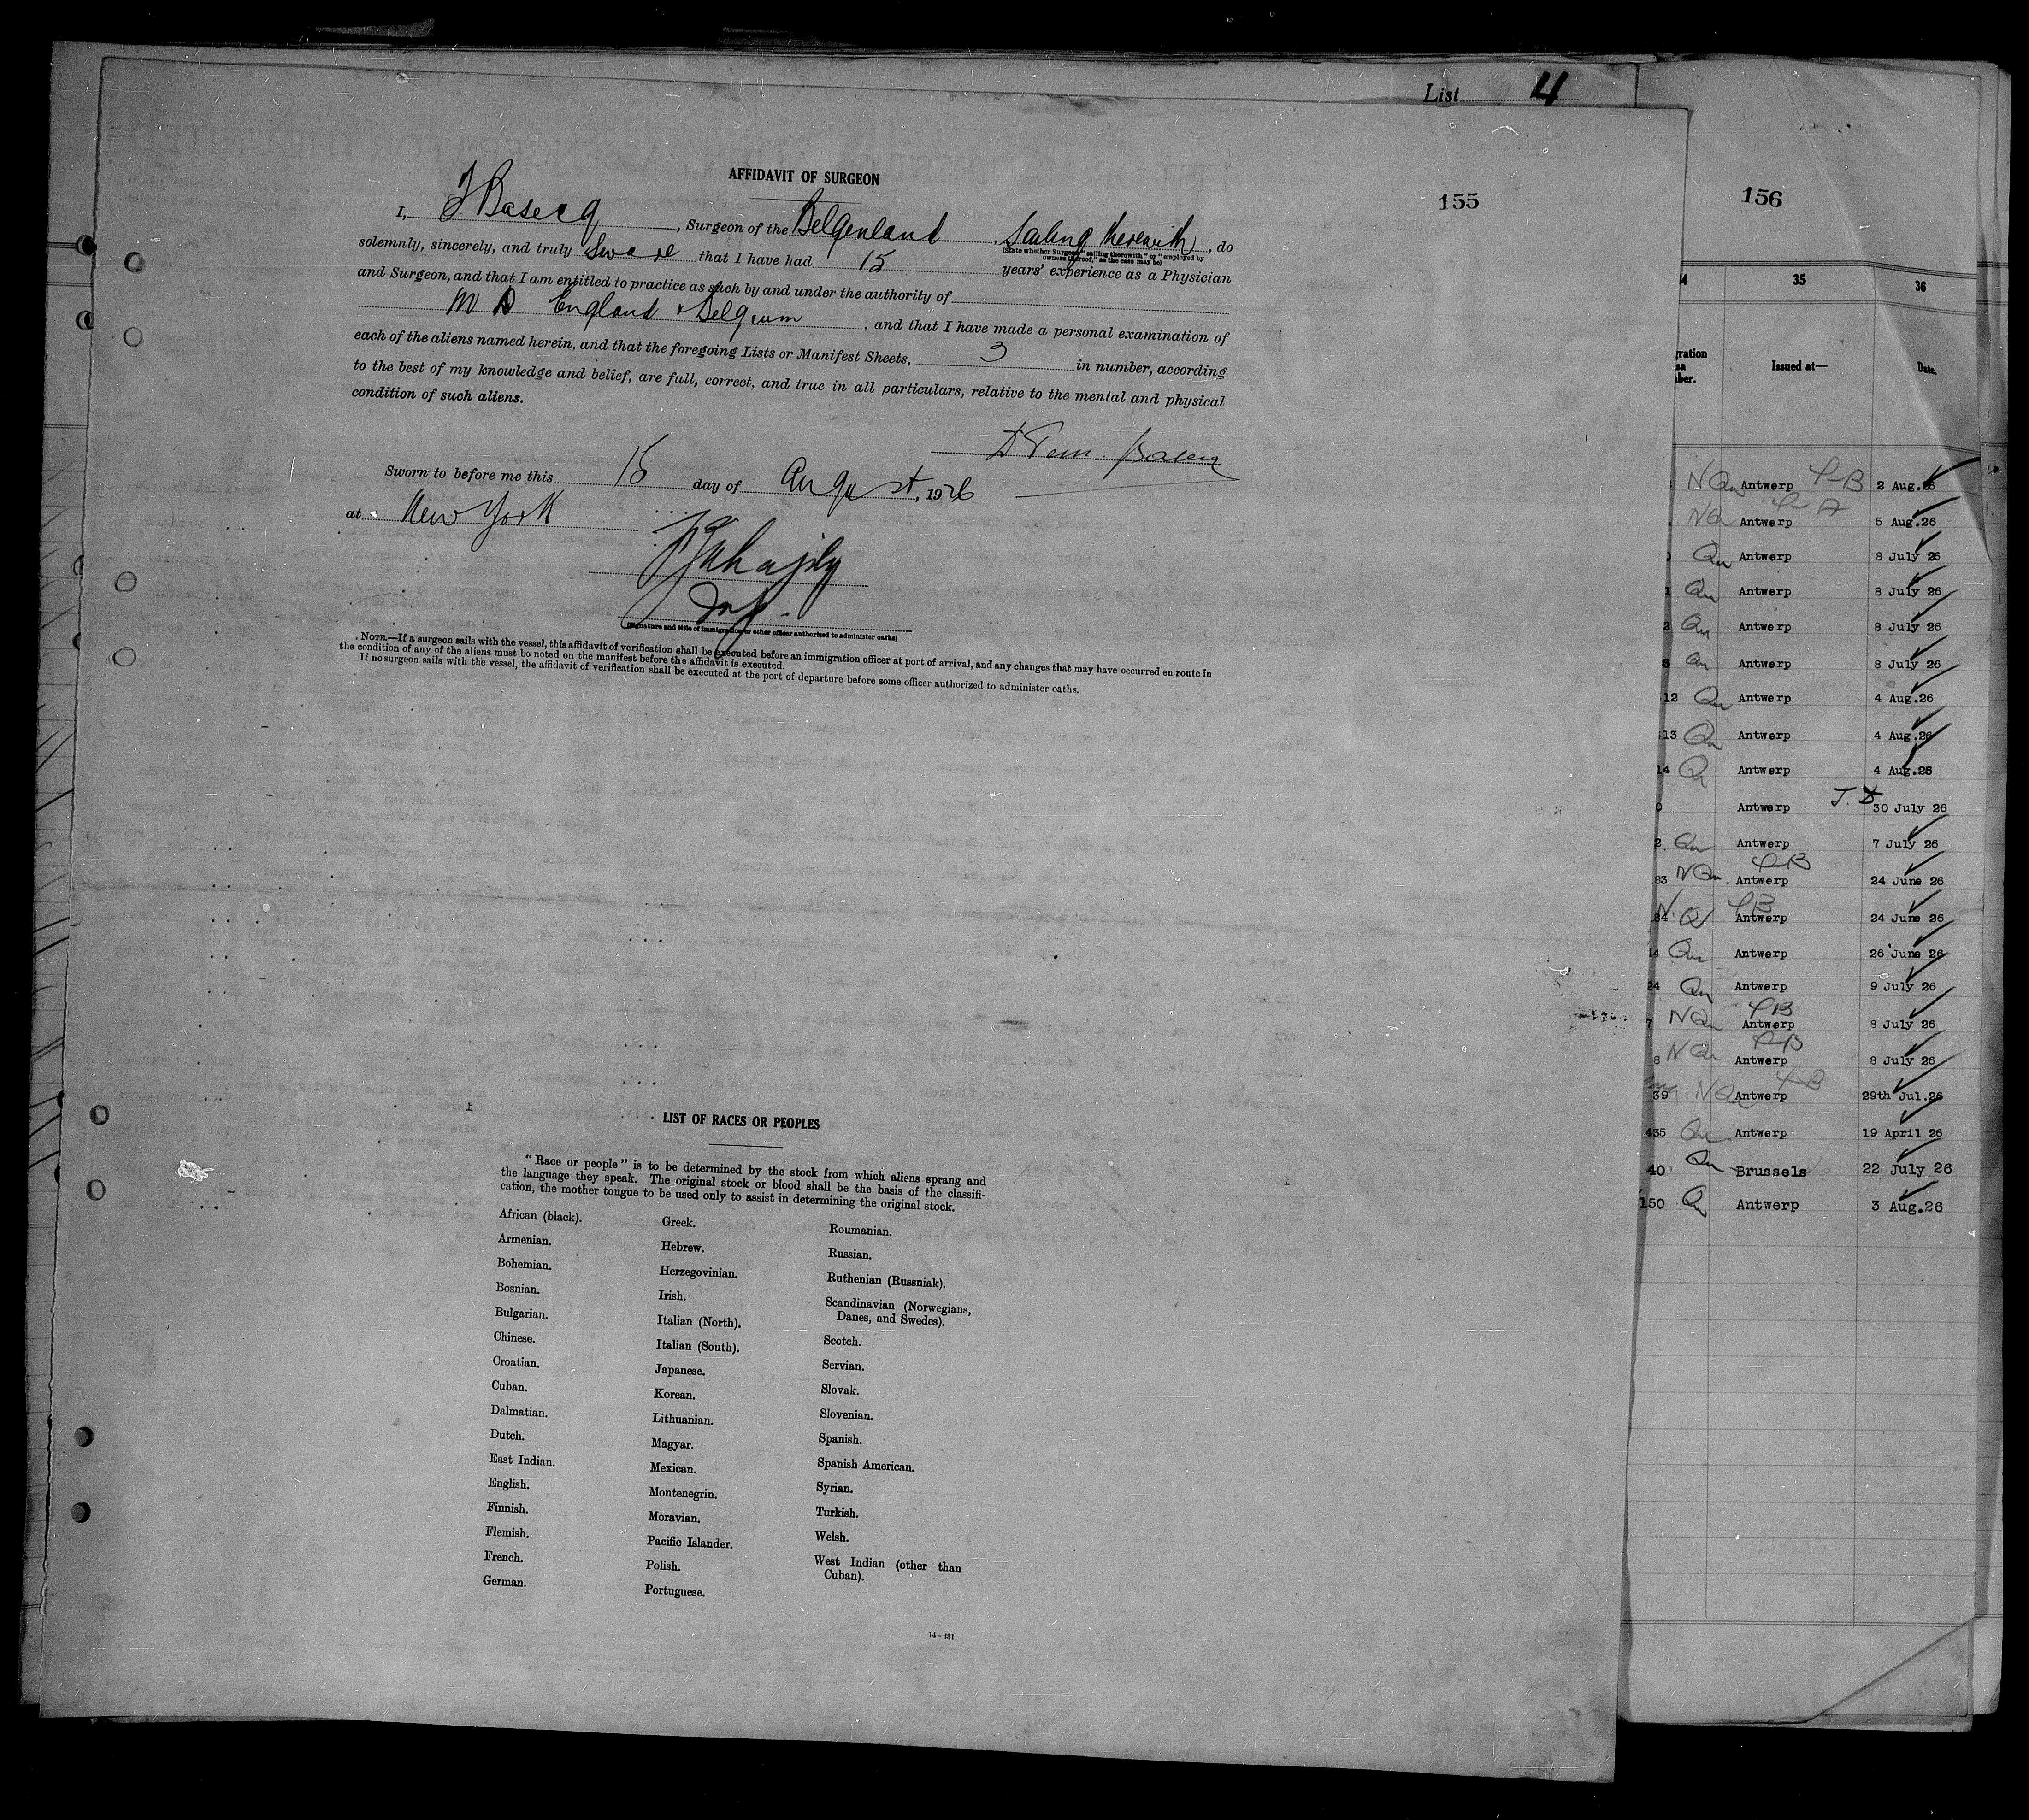 List 4
155
AFFIDAVIT OF SURGEON
I, Basecq, Surgeon of the Belgenland Sailing therewith, do
(State whether Surgeon "sailing therewith" or "employed by
owners thereof," as the case may be)
solemnly, sincerely, and truly Sware that I have had 15 years' experience as a Physician
and Surgeon, and that I am entitled to practice as such by and under the authority of
M D England & Belgium, and that I have made a personal examination of
each of the aliens named herein, and that the foregoing Lists or Manifest Sheets, 3 in number, according
to the best of my knowledge and belief, are full, correct, and true in all particulars, relative to the mental and physical
condition of such aliens.
Sworn to before me this 15 day of August, 1926
at New York
Insp.
(Signature and title of immigration or other officer authorized to administer oaths)
NOTE.—If a surgeon sails with the vessel, this affidavit of verification shall be executed before an immigration officer at port of arrival, and any changes that may have occurred en route in
the condition of any of the aliens must be noted on the manifest before the affidavit is executed.
If no surgeon sails with the vessel, the affidavit of verification shall be executed at the port of departure before some officer authorized to administer oaths.
LIST OF RACES OR PEOPLES
"Race or people" is to be determined by the stock from which aliens sprang and
the language they speak. The original stock or blood shall be the basis of the classifi-
cation, the mother tongue to be used only to assist in determining the original stock.
African (black).
Armenian.
Bohemian.
Bosnian.
Bulgarian.
Chinese.
Croatian.
Cuban.
Dalmatian.
Dutch.
East Indian.
English.
Finnish.
Flemish.
French.
German.
Greek.
Hebrew.
Herzegovinian.
Irish.
Italian (North).
Italian (South).
Japanese.
Korean.
Lithuanian.
Magyar.
Mexican.
Montenegrin.
Moravian.
Pacific Islander.
Polish.
Portuguese.
Roumanian.
Russian.
Ruthenian (Russniak).
Scandinavian (Norwegians,
Danes, and Swedes).
Scotch.
Servian.
Slovak.
Slovenian.
Spanish.
Spanish American.
Syrian.
Turkish.
Welsh.
West Indian (other than
Cuban).
14—431
156
34 35 36
Issued at— Date.
NQu Antwerp 4-B 2 Aug.26
NQu Antwerp 5 Aug.26
Qu Antwerp 8 July 26
1 Qu Antwerp 8 July 26
2 Qu Antwerp 8 July 26
Qu Antwerp 8 July 26
12 Qu Antwerp 4 Aug.26
13 Qu Antwerp 4 Aug.26
14 Qu Antwerp 4 Aug.26
0 Antwerp 30 July 26
2 Qu Antwerp 7 July 26
83 NQu Antwerp 4-B 24 June 26
84 NQ Antwerp 4B 24 June 26
14 Qu Antwerp 26 June 26
24 Qu Antwerp 9 July 26
7 NQu Antwerp 4B 8 July 26
8 NQu Antwerp 4-B 8 July 26
39 NQu Antwerp 4-B 29th Jul.26
435 Qu Antwerp 19 April 26
40 Qu Brussels 22 July 26
150 Qu Antwerp 3 Aug.26